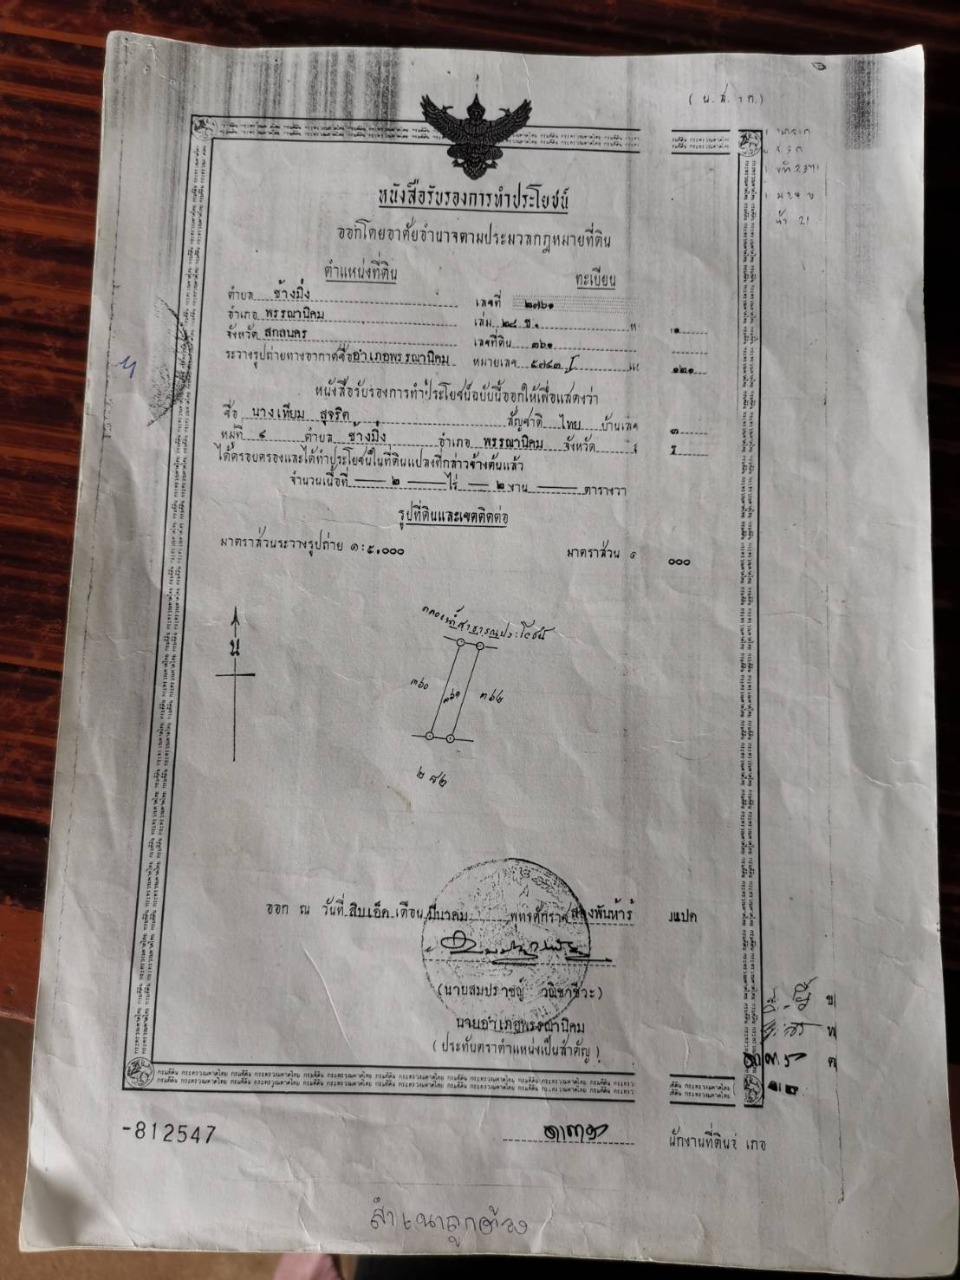 (น.ส. ๓ ก.)
หนังสือรับรองการทำประโยชน์
ออกโดยอาศัยอำนาจตามประมวลกฎหมายที่ดิน
ตำแหน่งที่ดิน ทะเบียน
ตำบล ช้างมิ่ง เลขที่ ๒๗๖๑
อำเภอ พรรณานิคม เล่ม ๒๘ ข. ห
จังหวัด สกลนคร เลขที่ดิน ๓๖๑
ระวางรูปถ่ายทางอากาศชื่อ อำเภอพรรณานิคม หมายเลข ๕๗๔๓ I ๑๒๑
หนังสือรับรองการทำประโยชน์ฉบับนี้ออกให้เพื่อแสดงว่า
ชื่อ นางเทียม สุจริต สัญชาติ ไทย บ้านเลข ๓
หมู่ที่ ๔ ตำบล ช้างมิ่ง อำเภอ พรรณานิคม จังหวัด
ได้ครอบครองและได้ทำประโยชน์ในที่ดินแปลงที่กล่าวข้างต้นแล้ว
จำนวนเนื้อที่ ๒ ไร่ ๒ งาน ตารางวา
รูปที่ดินและเขตติดต่อ
มาตราส่วนระวางรูปถ่าย ๑:๕,๐๐๐ มาตราส่วน ๑ ๐๐๐
สาธารณประโยชน์
น
๓๖๐ ๓๖๑ ๓๖๒
๒๘๒
ออก ณ วันที่ สิบเอ็ด เดือน มีนาคม พุทธศักราช สองพันห้าร้ งแปด
(นายสมปราชญ์ วณิชาชีวะ)
นายอำเภอพรรณานิคม
(ประทับตราตำแหน่งเป็นสำคัญ)
-812547
นักงานที่ดินอำเภอ
สำเนาถูกต้อง